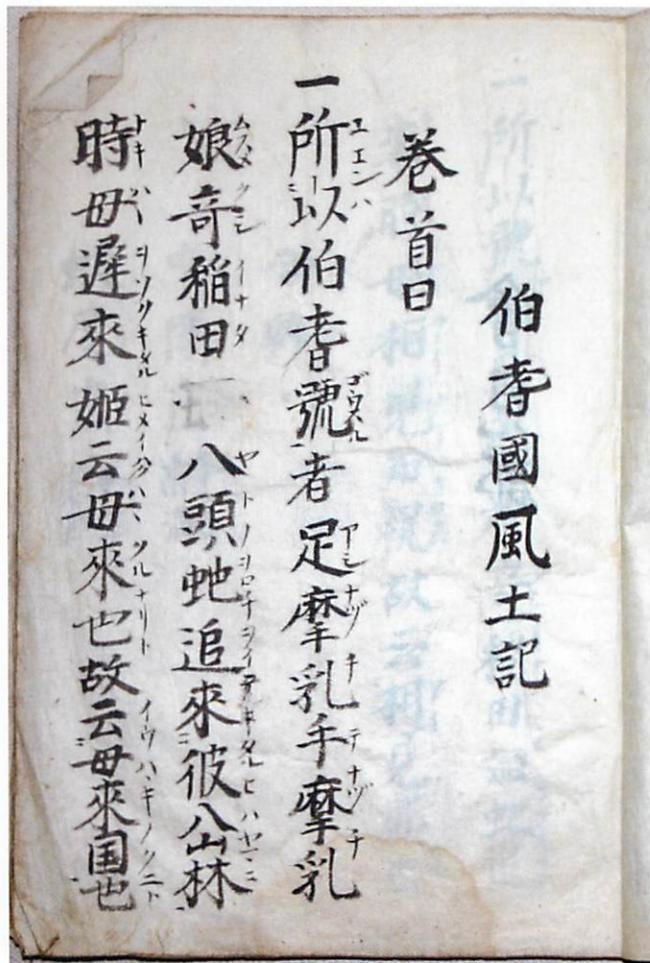 伯耆國風土記
巻首曰
一所以伯耆號者足摩乳手摩乳
娘奇稲田 八頭虵追來彼八山林
時母遅來姬云母來也故云母來国也